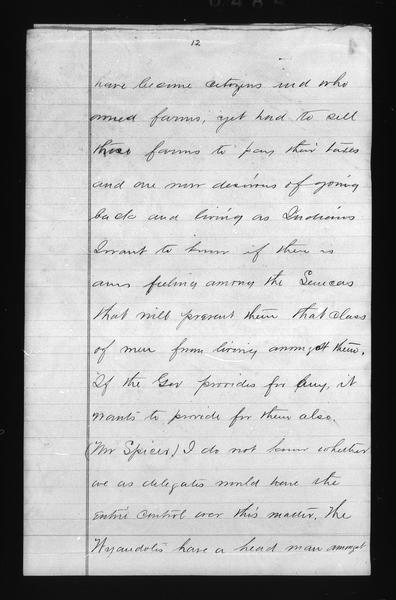 12
have become citizens and who
owned farms, yet had to sell
those farms to pay their taxes
and are now desirous of going
back and living as Indians
I want to know if there is
any feeling among the Senecas
that will prevent them that class
of men from living amongst them.
If the Gov provides for any, it
wants to provide for them also.
(Mr Spicer) I do not know whether
we as delegates would have the
entire control over this matter. The
Wyandotts have a head man amongst